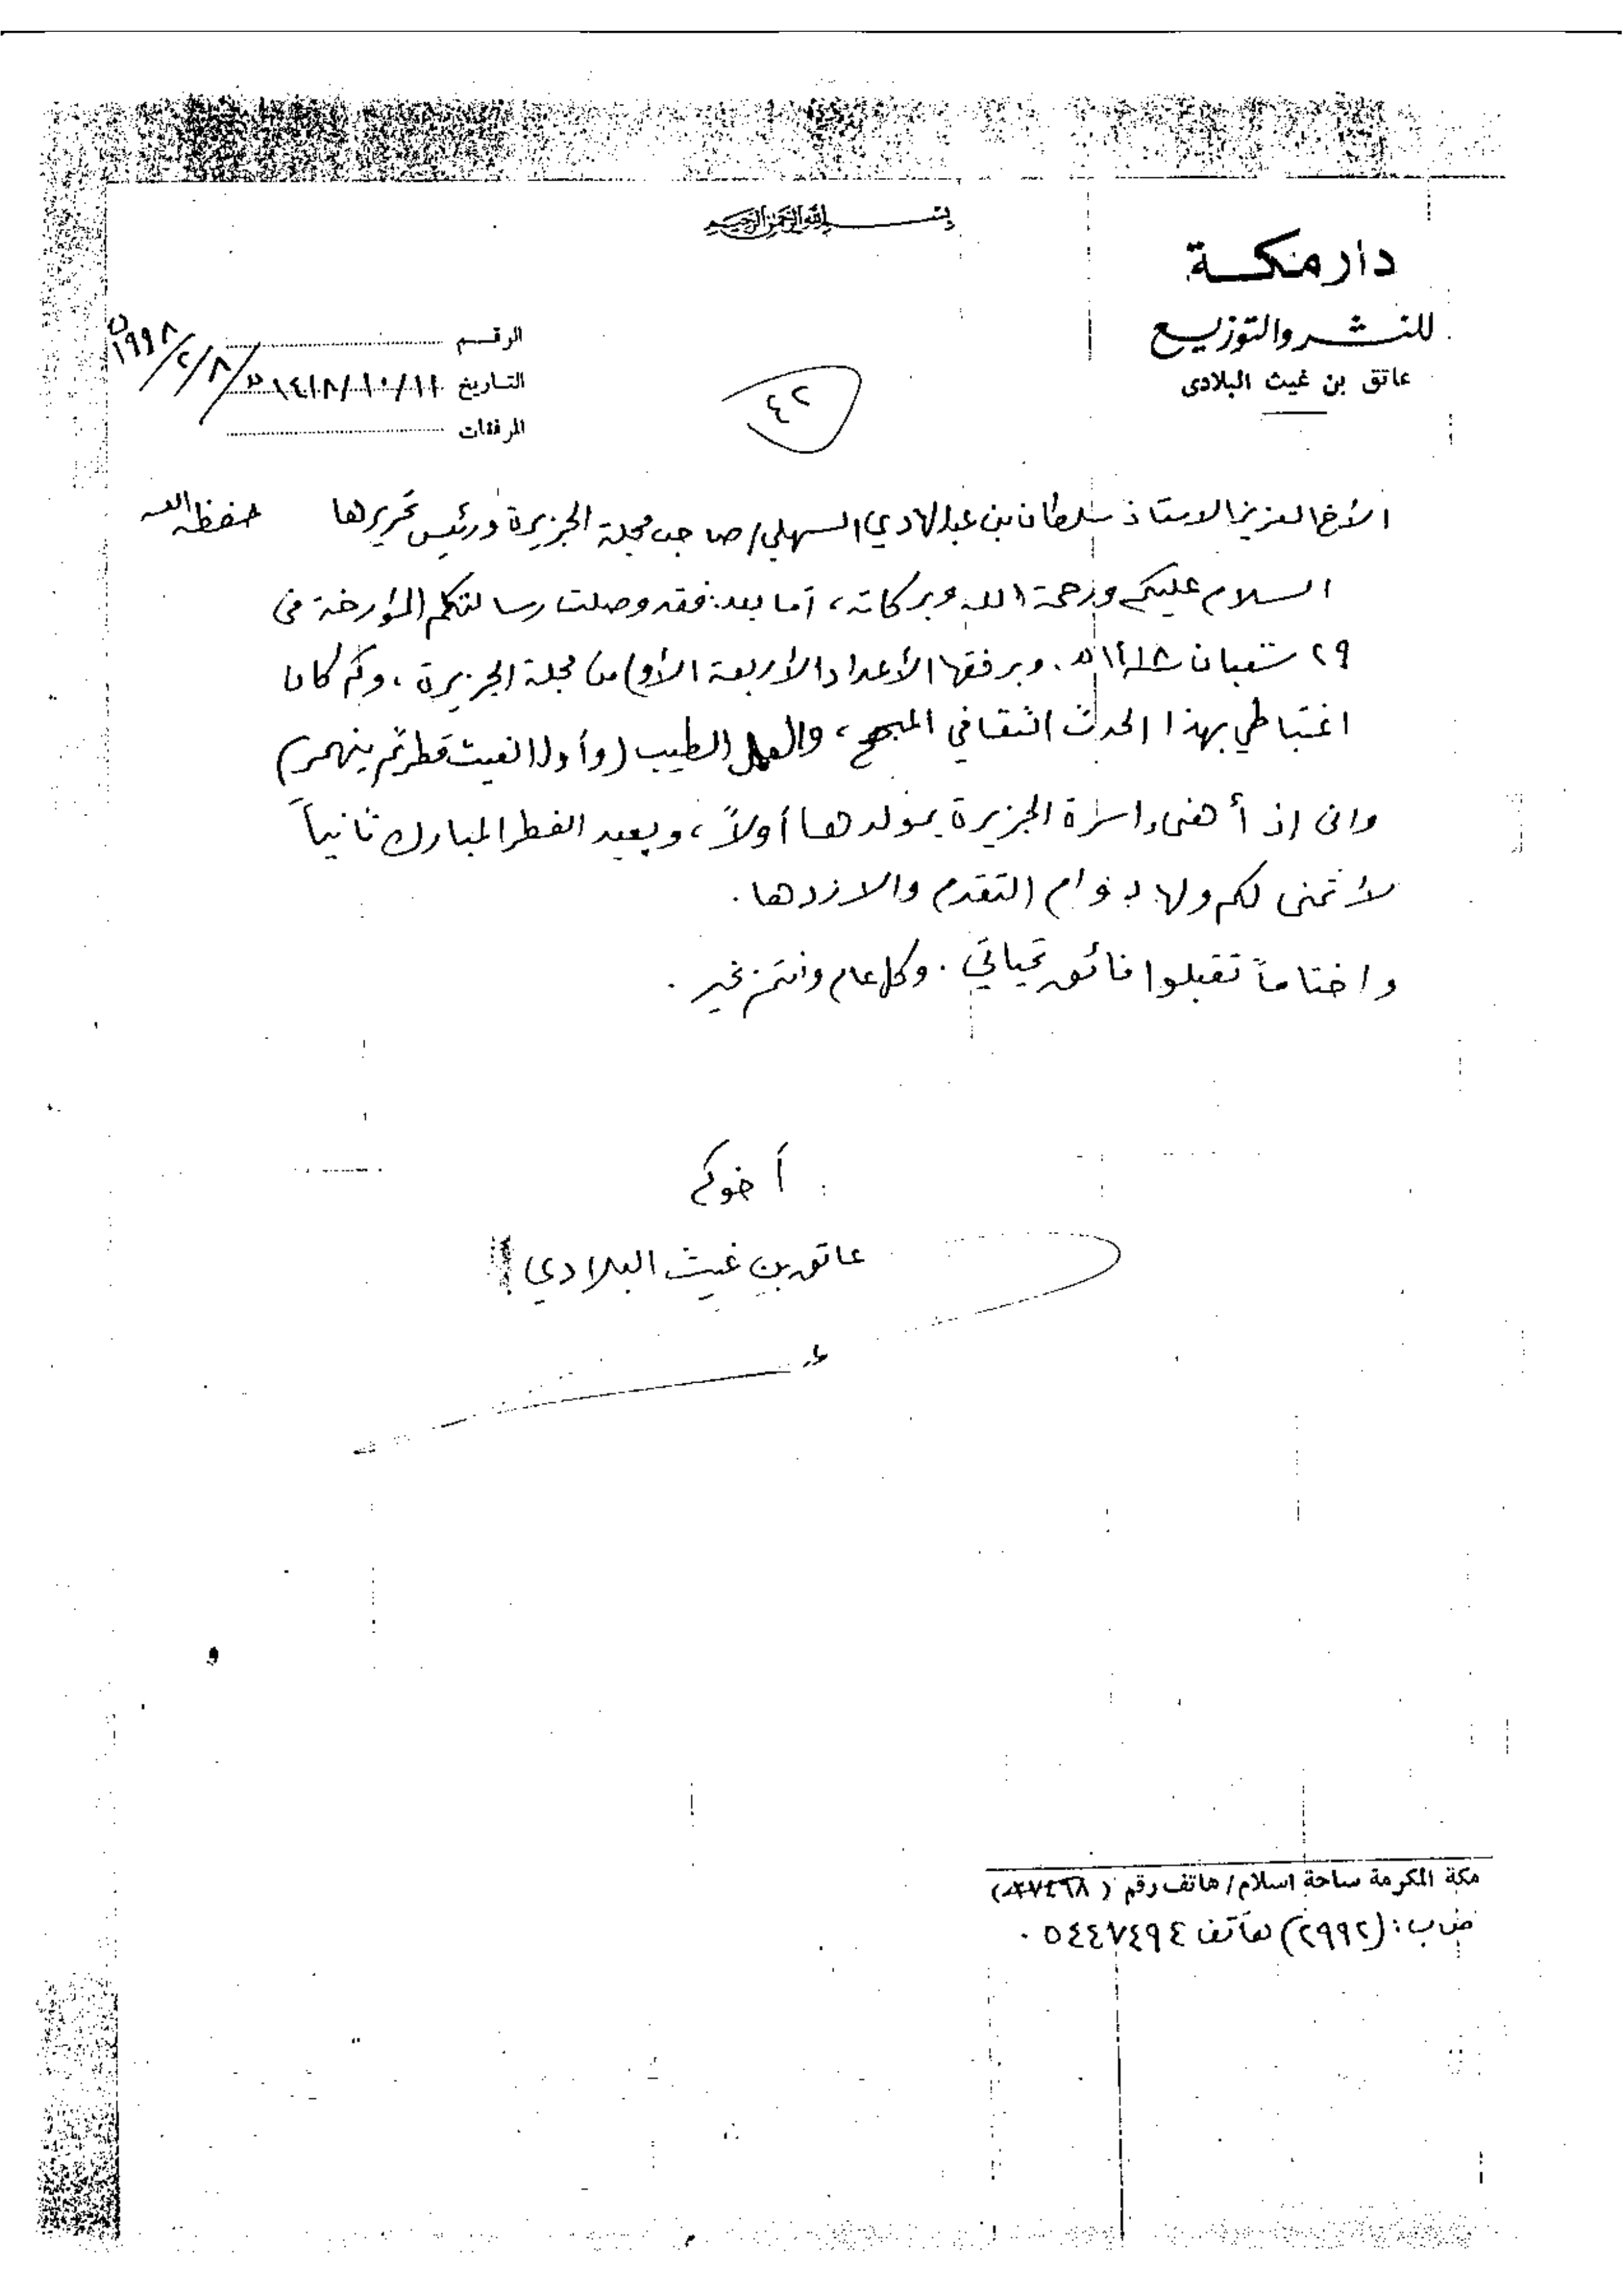 بسم الله الرحمن الرحيم
دار مكة
للنشر والتوزيع
عاتق بن غيث البلادى
الرقم
التاريخ ١٤١٨/١٠/١١ هـ ١٩٩٨/٢/٨
المرفقات
٤٢
الأخ العزيز الاستاذ سلطان بن عبدالهادي السهلي/ صاحب مجلة الجزيرة ورئيس تحريرها حفظه الله
السلام عليكم ورحمة الله وبركاته، أما بعد: فقد وصلت رسالتكم المؤرخة في
٢٩ شعبان ١٤١٨هـ. وبرفقها الأعداد الأربعة الأول من مجلة الجزيرة، وكم كان
اغتباطي بهذا الحدث الثقافي المبهج، والعمل الطيب (وأول الغيث قطر ثم ينهمر)
واني إذ أهنىء اسرة الجزيرة بمولدها أولاً، وبعيد الفطر المبارك ثانياً
لأتمنى لكم ولها دوام التقدم والازدها.
واختاماً تقبلوا فائق تحياتي. وكل عام وانتم بخير.
أخوكم
عاتق بن غيث البلادي
مكة المكرمة ساحة اسلام/ هاتف رقم
ص ب: (٢٩٩٢) هاتف ٥٤٤٧٤٩٤.